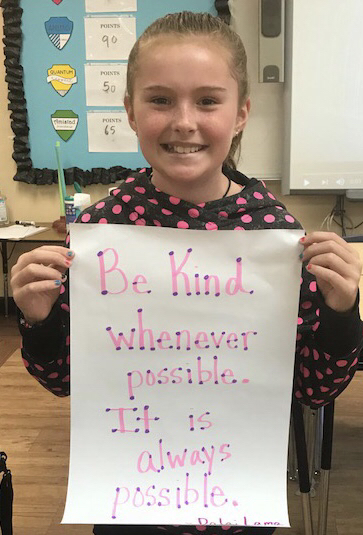 POINTS
90
QUANTUM
POINTS
50
Amistad
POINTS
65
Be Kind
whenever
possible.
It is
always
possible.
Dalai Lama